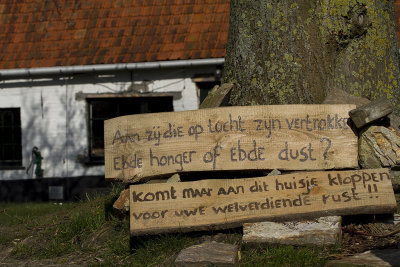 Aan zij die op tocht zijn vertrokken
Ebde honger of ebde dust?
Komt maar aan dit huisje kloppen
voor uwe welverdiende rust!!